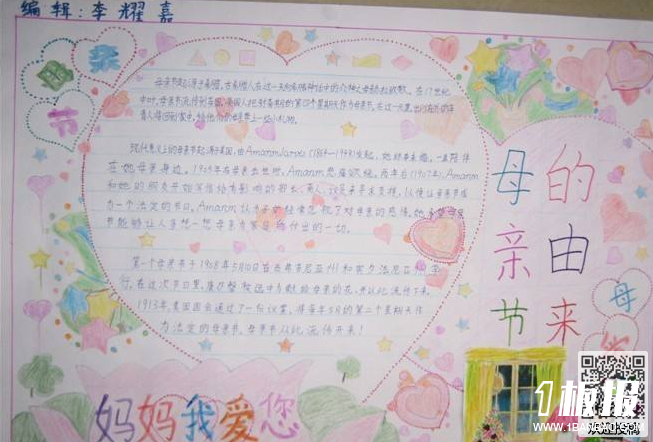 编辑:李耀嘉
母亲节
母亲节起源于希腊,古希腊人在这一天向希腊神话中的众神之母赫拉致敬。在17世纪
中叶,母亲节流传到英国,英国人把封斋期的第四个星期天作为母亲节。在这一天里,出门在外的年
青人将回到家中,给他们的母亲带上一些小礼物。
现代意义上的母亲节起源于美国,由Amanm Jarvis(1864—1948)发起,她终身未婚,一直陪伴
在她母亲身边。1905年
和她的朋友开始写信给有影响的部长、商人、议员来寻求支持,以便让母亲节成
为一个法定的节日。Amanm认为子女经常忽视了对母亲的感情,她希望母亲
节能够让人多想一想母亲为家庭所付出的一切。
第一个母亲节于1908年5月10日在西弗吉尼亚州和宾夕法尼亚州举
行,在这次节日里,康乃馨被选中为献给母亲的花,并以此流传下来。
1913年,美国国会通过了一份议案,将每年5月的第二个星期天作
为法定的母亲节,母亲节从此流传开来!
母亲节
的由来
母
妈妈我爱您
1板报
WWW.1BANBAO.COM
欢迎投稿